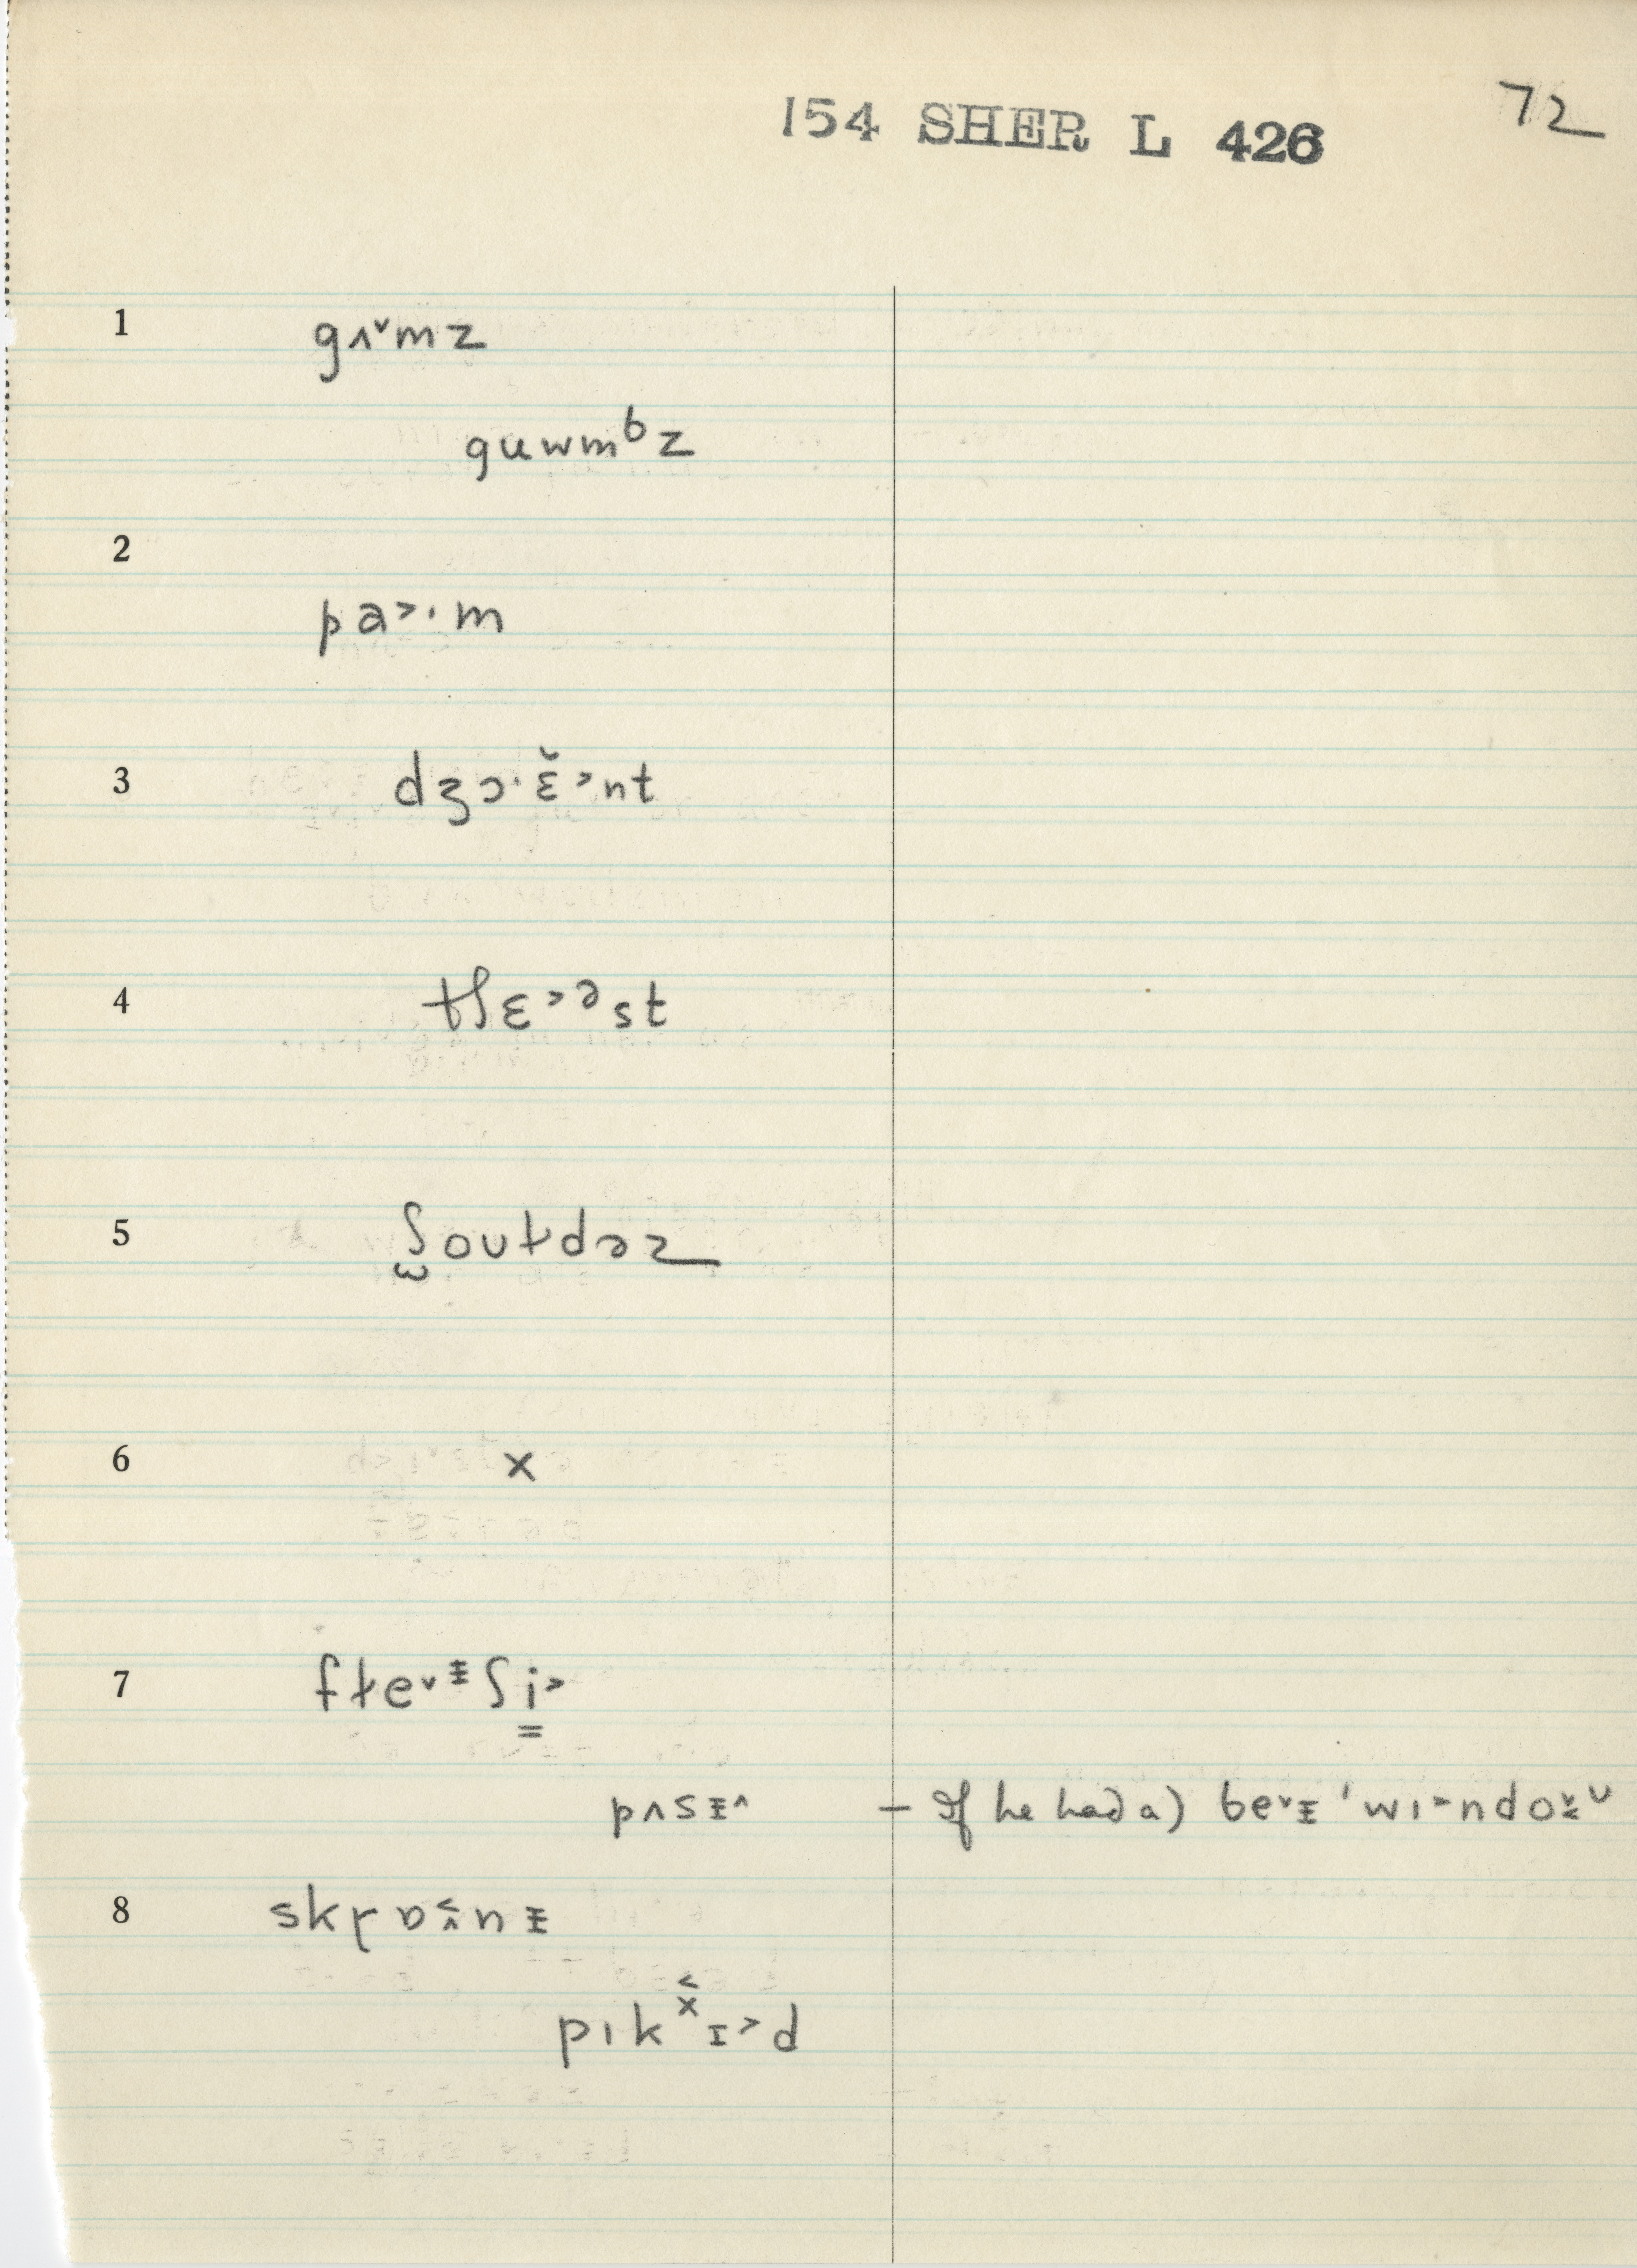 154 SHER L 426
72
1 gʌ˅mz
guwmᵇz
2
pa˃·m
3 dʒɔ·ɛ̆˃nt
4 tʃɛ˃ᵊst
5 ʃ̫oʊɫdəz
6 ×
7 fɫe˅ᵻʃi̳˃
pʌsᵻ˄ – If he had a) be˅ᵻ ˈwɪ˃ndo
8 skrɒɪ̂nᵻ
pɪkˣɪ˃d